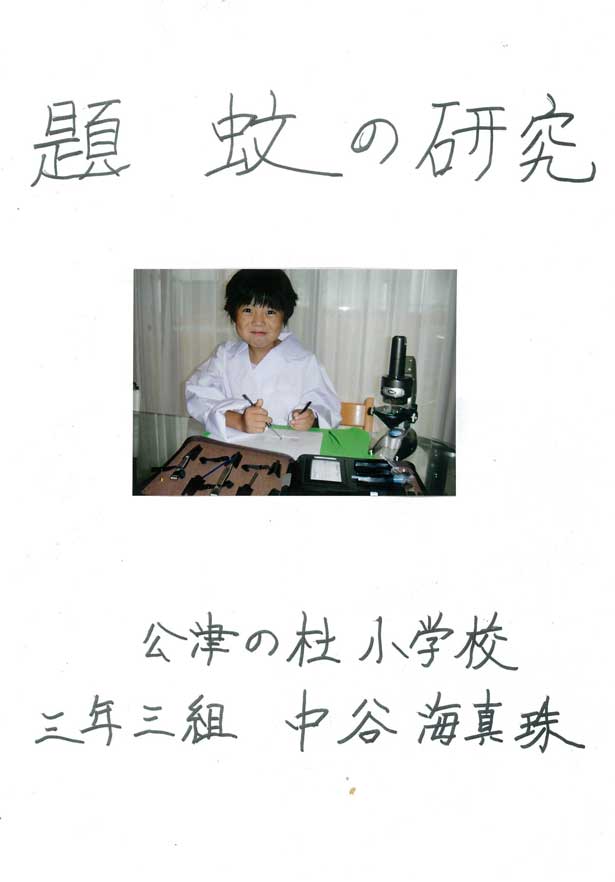 題 蚊の研究
公津の杜小学校
三年三組 中谷海真珠